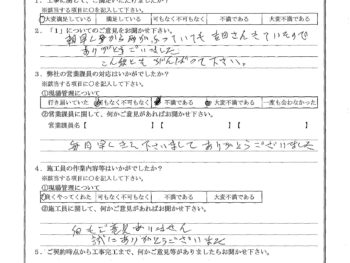 ※該当する項目に○を記入して下さい。
大変満足している 満足している 可もなく不可もなく 不満である 大変不満である
2.「1」についてのご意見をお聞かせ下さい。
ありがとうございました
こん後とも がんばって下さい。
3. 弊社の営業課員の対応はいかがでしたか?
※該当する項目に○を記入して下さい。
①現場管理について
行き届いていた 可もなく不可もなく 不満である 大変不満である 一度も会わなかった
②営業課員に関して、何かご意見があればお聞かせ下さい。
営業課員名【 】【 】【 】
毎日 下さいまして ありがとうございました
4. 施工員の作業内容等はいかがでしたか?
※該当する項目に○を記入して下さい。
①現場管理について
良くやってくれた 可もなく不可もなく 不満である 大変不満である
②施工員に関して、何かご意見があればお聞かせ下さい。
何もご意見ありません
誠にありがとうございました
5. ご契約時点から工事完工まで、何かご意見等がありましたらお聞かせ下さい。